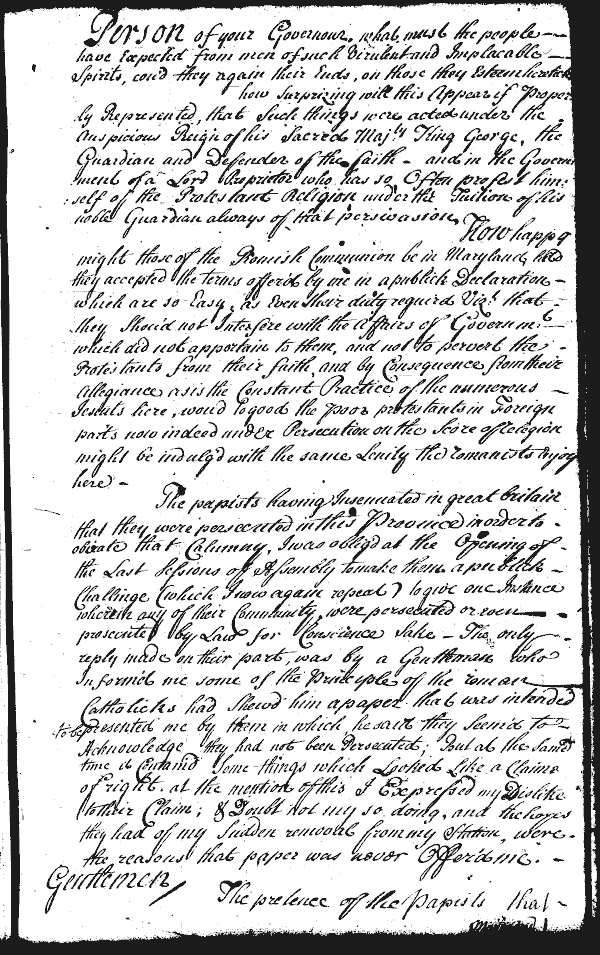 Person of your Governour, what must the people
have Expected from men of such Virulent and Implacable
Spirits, cou'd they again their Ends, on those they Esteem hereticks
how Surprizing will this Appear if Proper
ly Represented, that Such things were acted under the
Auspicious Reign of his Sacred Maj:ty King George, the
Guardian and Defender of the faith - and in the Govern
ment of a Lord Proprietor who has so Often profest him
self of the Protestant Religion under the Tuition of his
noble Guardian always of that perswasion,
How happy
might those of the Romish Communion be in Maryland, had
they accepted the terms offer'd by me in a publick Declaration
which are so Easy, as Even their duty requir'd Viz:t that
they Shou'd not Interfere with the Affairs of Governm:t
which did not appertain to them, and not to pervert the
Protestants from their faith, and by Consequence from their
Allegiance as is the Constant Practice of the numerous
Jesuits here, wou'd to good the poor protestants in Foreign
parts now indeed under Persecution on the Score of religion
might be indulg'd with the same Lenity the romanists enjoy
here -
The papists having Insenuated in great britain
that they were persecuted in this Province in order to
obviate that Calumny, I was oblig'd at the Opening of
the Last Sessions of Assembly to make them a publick
Challenge (which I now again repeat) to give one Instance
wherein any of their Community, were persecuted or even
prosecuted by Law for Conscience Sake - The only
reply made on their part, was by a Gentleman who
Inform'd me some of the Principle of the roman
Catholicks had Shew'd him a paper that was intended
to be presented me by them in which he said they seem'd to
Acknowledge they had not been Persecuted; but at the Same
time it Contain'd Some things which Looked Like a Claime
of right. at the mention of this I Expressed my Dislike
to their Claim; & Doubt not my so doing, and the hopes
they had of my Sudden removal from my Station, were
the reasons that paper was never Offer'd me. -
Gentlemen
The pretence of the Papists that